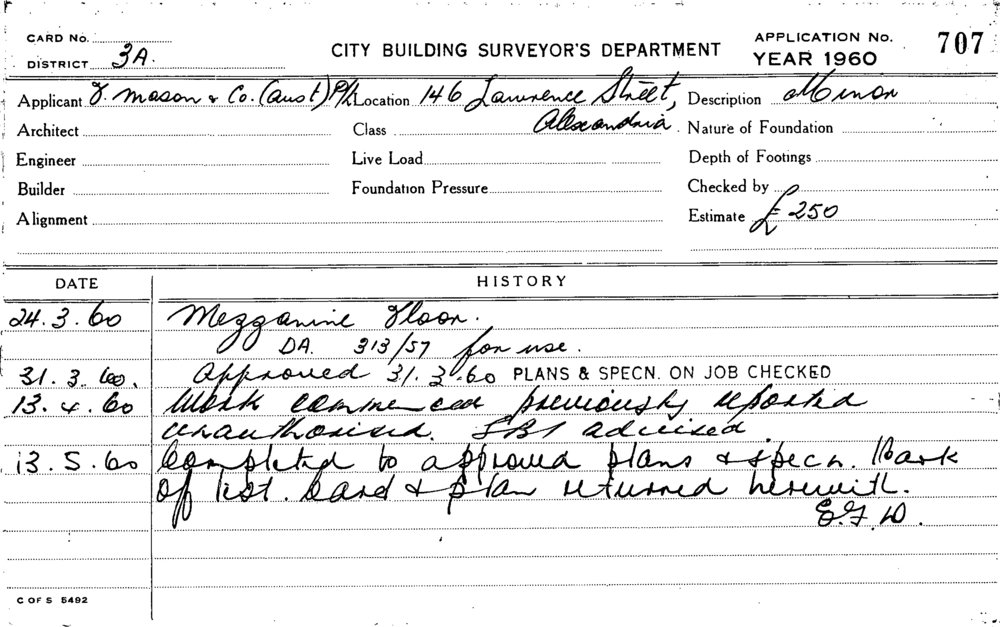 CARD No.
DISTRICT 3A.
CITY BUILDING SURVEYOR'S DEPARTMENT
APPLICATION No. 707
YEAR 1960
Applicant J. Mason & Co. (Aust) P/L Location 146 Lawrence Street, Description Minor
Architect Class Alexandria. Nature of Foundation
Engineer Live Load Depth of Footings
Builder Foundation Pressure Checked by
Alignment Estimate £250
DATE HISTORY
24.3.60 Mezzanine Floor.
DA. 313/57 for use.
31.3.60. Approved 31.3.60 PLANS & SPECN. ON JOB CHECKED
13.4.60 Work commenced previously reported
unauthorised. SBI advised.
13.5.60 Completed to approved plans & specn. Mark
off list. Card & plan returned herewith.
E.F.D.
C OF S 5492